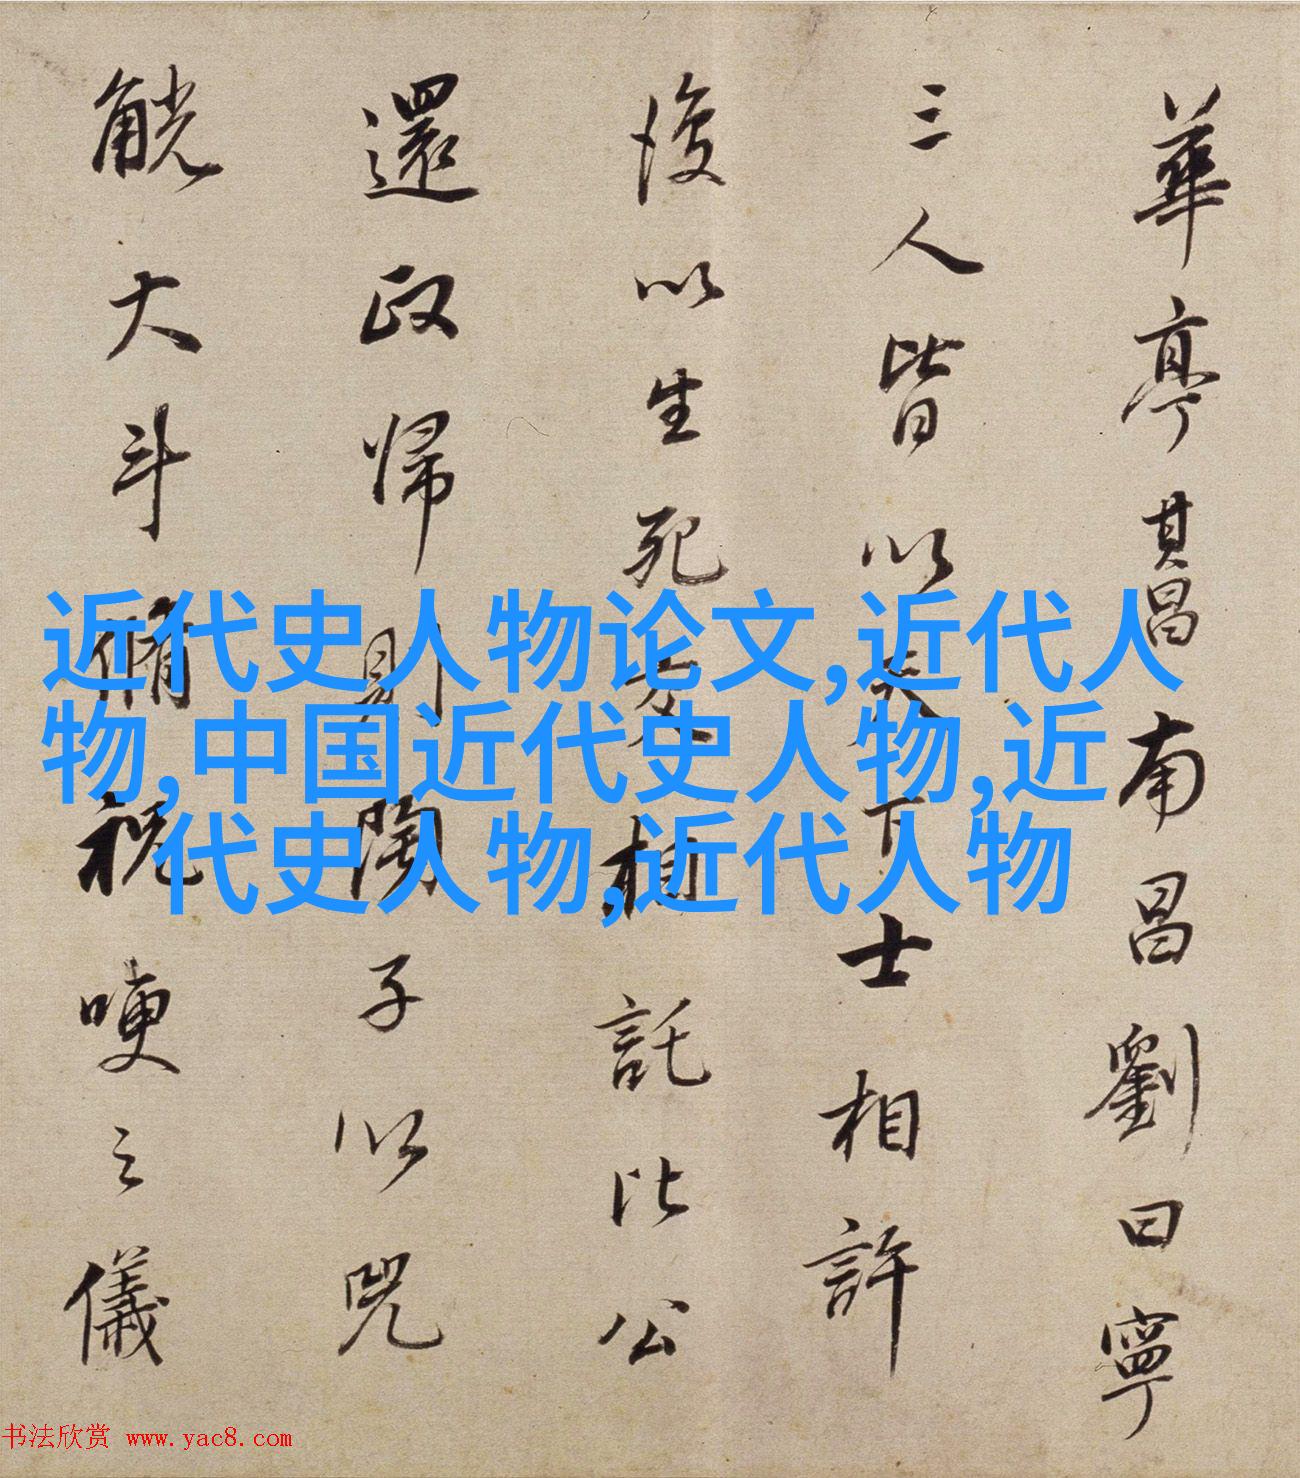 華亭其昌南昌劉曰寧
三人皆以天下士相許
後以生死交相託比公
還政歸則陶子以兕
觥大斗脩祝哽之儀
近代史人物论文,近代人
物,中国近代史人物,近
代史人物,近代人物
书法欣赏 www.yac8.com